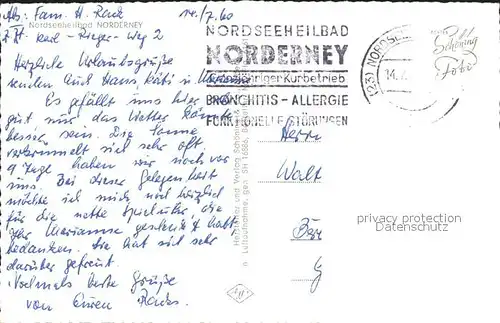 Abs: Fam. H. Rack
14./7.60
Nordseeheilbad NORDERNEY
z.Zt. Karl-Rieger-Weg 2
Herzliche Urlaubsgrüße
senden Euch Hans, Käti u.
Es gefällt uns hier
gut nur das Wetter könnte
besser sein. Die Sonne
verkrümmelt sich sehr oft.
9 Tage haben wir noch vor
uns. Bei dieser Gelegenheit
möchte ich mich noch herzlich
für die nette Spieluhr, die
Ihr Marianne geschenkt habt,
bedanken. Sie hat sich sehr
darüber gefreut.
Nochmals beste Grüße
von Euren Racks.
NORDSEEHEILBAD
NORDERNEY
Ganzjähriger Kurbetrieb
BRONCHITIS - ALLERGIE
FUNKTIONELLE STÖRUNGEN
(23) NORDS
14.7.
Schöning
Foto
Herrn
Walt
privacy protection
Datenschutz